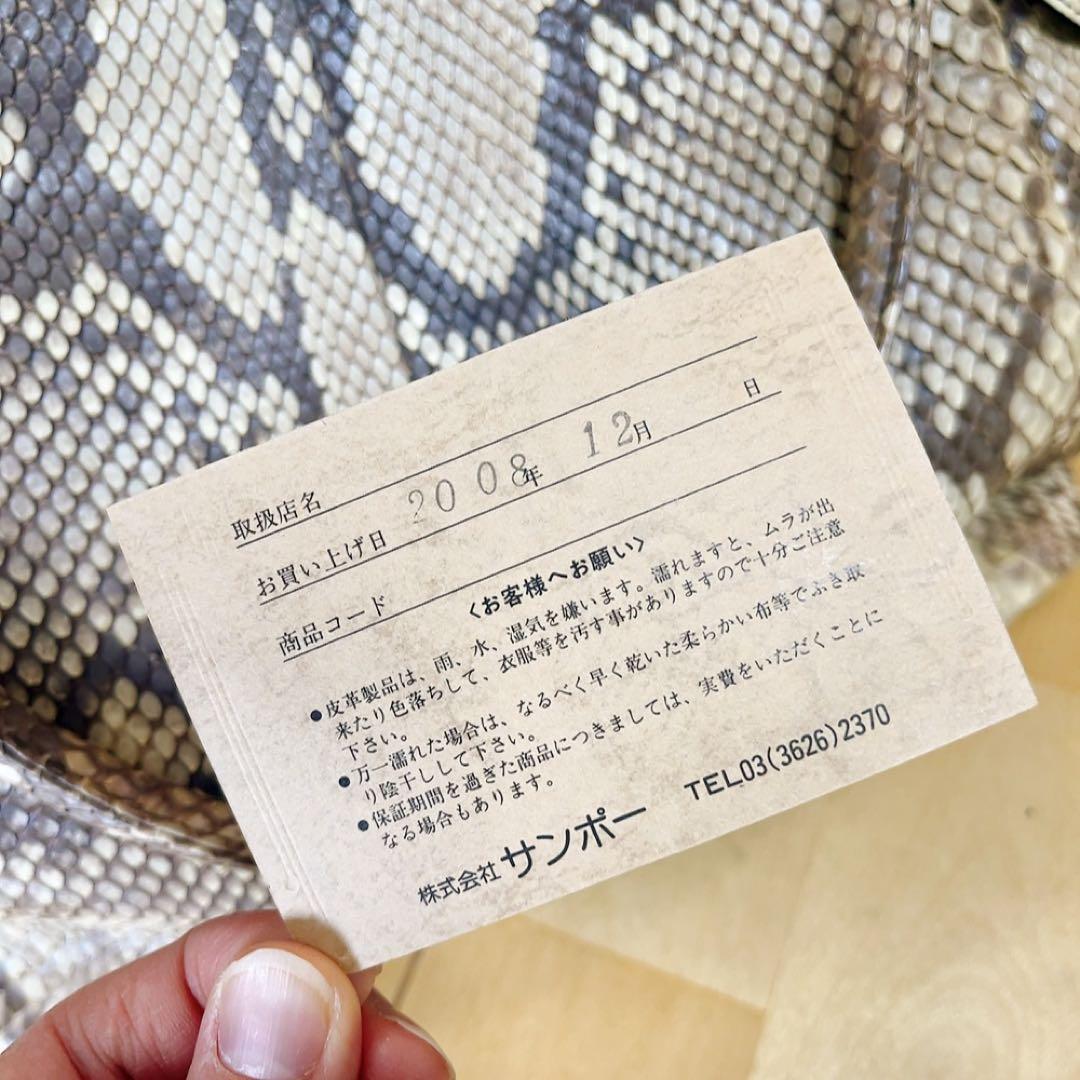 取扱店名
お買い上げ日 2008年 12月 日
商品コード
〈お客様へお願い〉
●皮革製品は、雨、水、湿気を嫌います。濡れますと、ムラが出
来たり色落ちして、衣服等を汚す事がありますので十分ご注意
下さい。
●万一濡れた場合は、なるべく早く乾いた柔らかい布等でふき取
り陰干しして下さい。
●保証期間を過ぎた商品につきましては、実費をいただくことに
なる場合もあります。
株式会社 サンポー TEL03(3626)2370